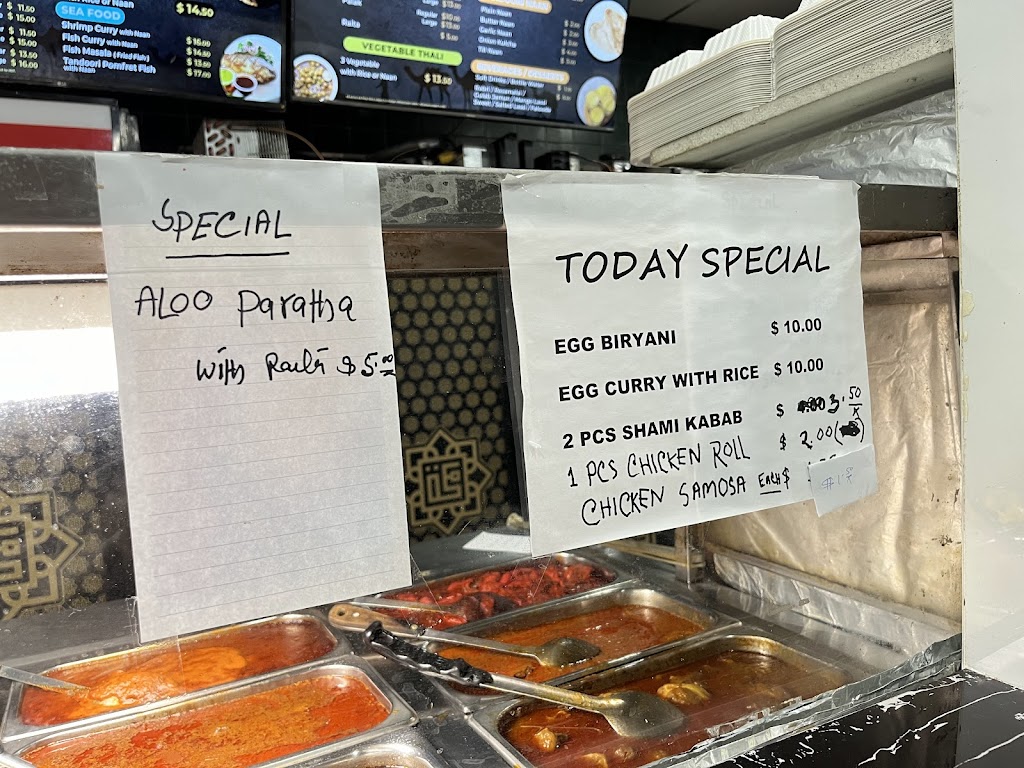 $ 14.50
SEA FOOD
Shrimp Curry with Naan
Fish Curry with Naan
Fish Masala (Fried Fish)
Tandoori Pomfret Fish
with Naan
$ 15.00
$ 14.50
$ 13.50
$ 17.00
$ 11.50
$ 15.00
$ 13.50
$ 16.00
Raita
Regular
Large
$ 5.00
VEGETABLE THALI
3 Vegetable
with Rice or Naan
$ 13.50
Plain Naan
Butter Naan
Garlic Naan
Onion Kulcha
SPECIAL
ALOO Paratha
with Raita $ 5.00
TODAY SPECIAL
EGG BIRYANI $ 10.00
EGG CURRY WITH RICE $ 10.00
2 PCS SHAMI KABAB $ 3.50
1 PCS CHICKEN ROLL $ 2.00
CHICKEN SAMOSA EACH $